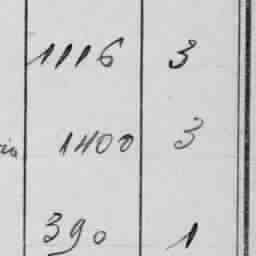 1116 3
1400 3
390 1